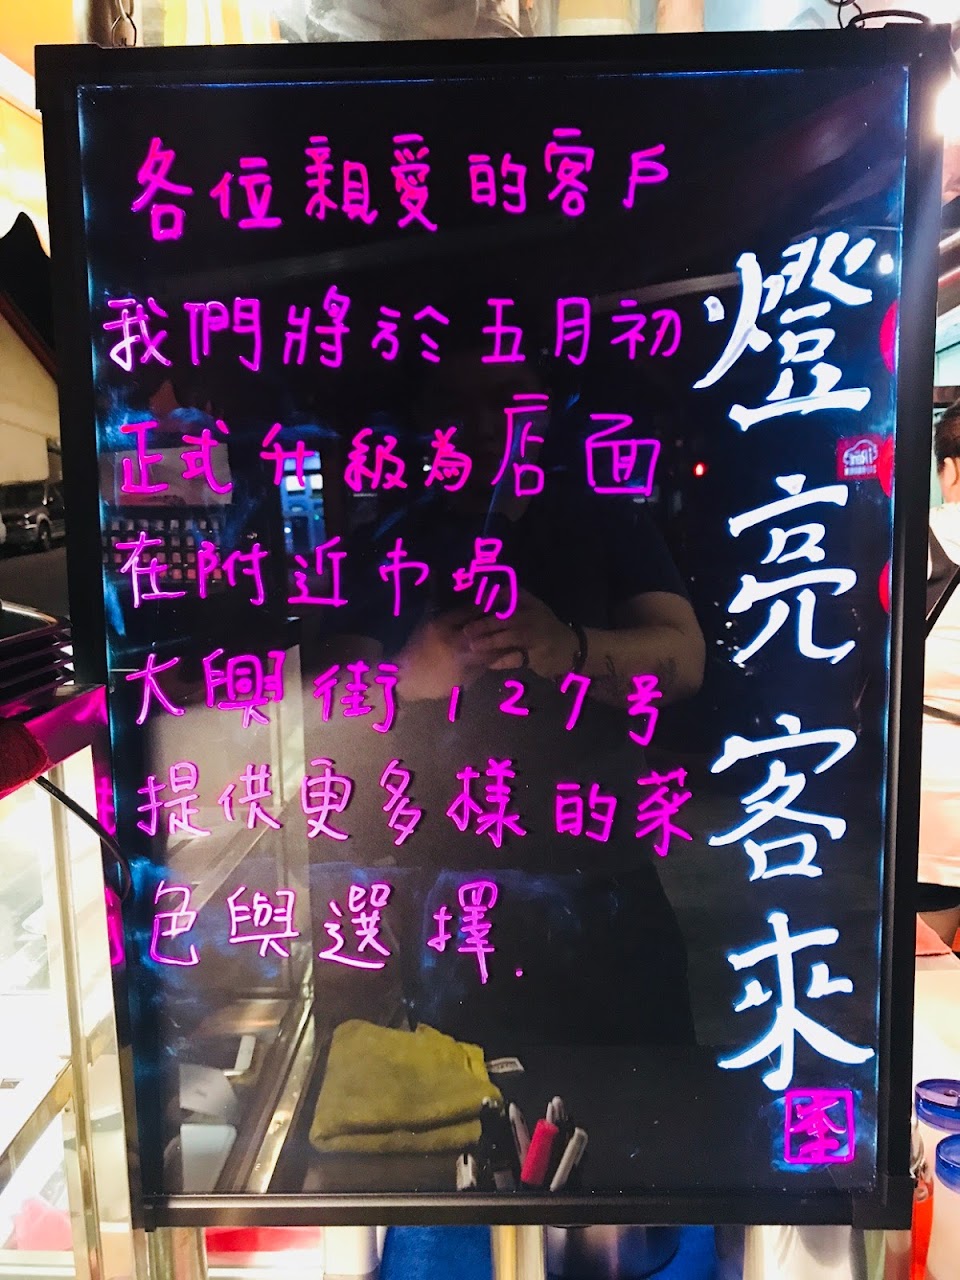 各位親愛的客戶
我們將於五月初
正式升級為店面
在附近市場
大興街127号
提供更多樣的菜
色與選擇.
燈亮客來